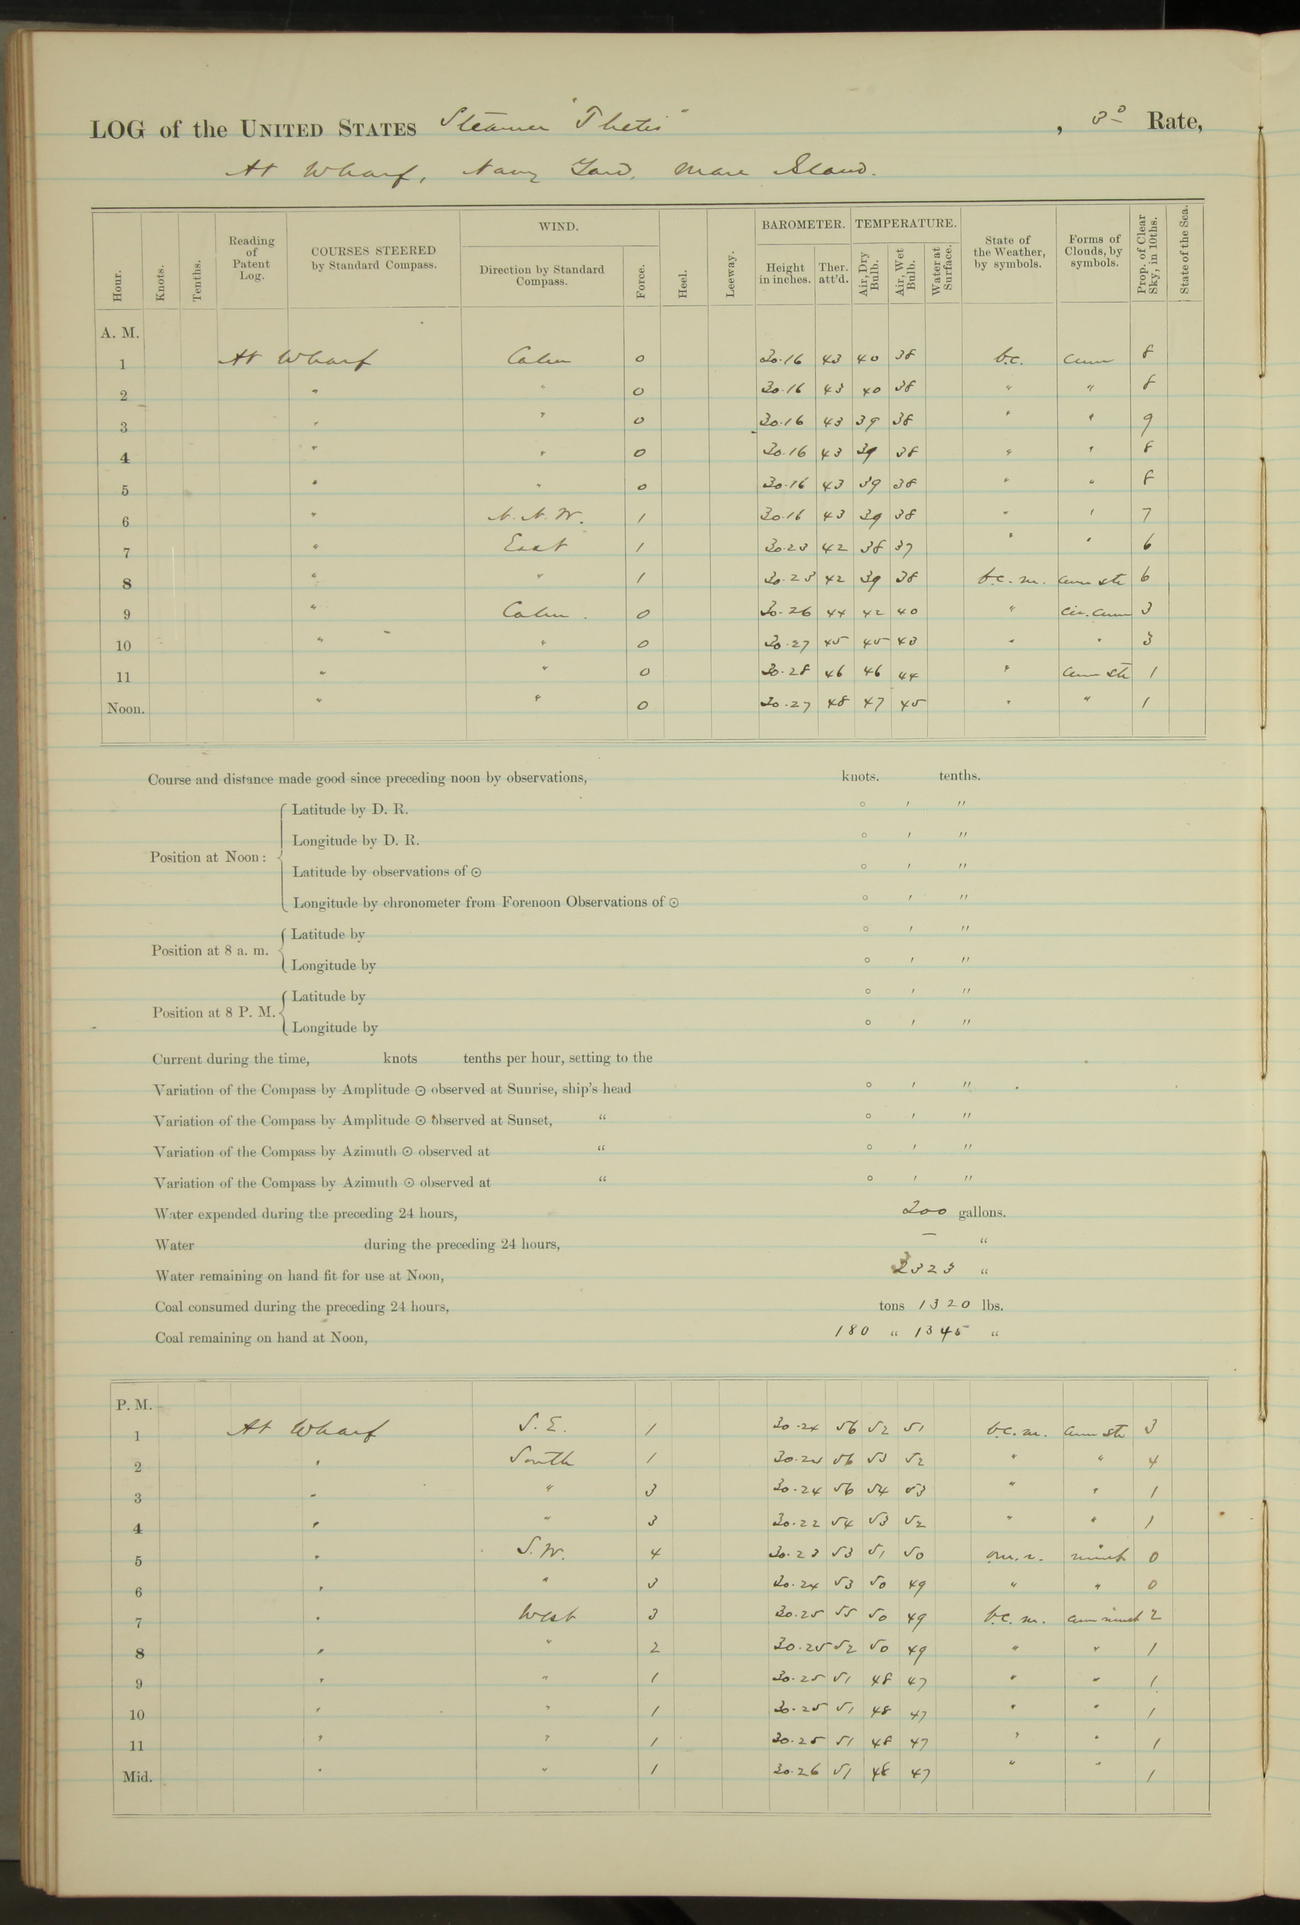 LOG of the UNITED STATES Steamer "Thetis", 3d Rate,
At Wharf, Navy Yard, Mare Island.
Hour. Knots. Tenths. Reading of Patent Log. COURSES STEERED by Standard Compass. WIND. Direction by Standard Compass. Force. Heel. Leeway. BAROMETER. Height in inches. Ther. att'd. TEMPERATURE. Air, Dry Bulb. Air, Wet Bulb. Water at Surface. State of the Weather, by symbols. Forms of Clouds, by symbols. Prop. of Clear Sky, in 10ths. State of the Sea.
A. M.
1 At Wharf Calm 0 30.16 43 40 38 b.c. cum 8
2 " " 0 30.16 43 40 38 " " 8
3 " " 0 30.16 43 39 38 " " 9
4 " " 0 30.16 43 39 38 " " 8
5 " " 0 30.16 43 39 38 " " 8
6 " N.N.W. 1 30.16 43 39 38 " " 7
7 " East 1 30.23 42 38 37 " " 6
8 " " 1 30.23 42 39 38 b.c.m. cum str 6
9 " Calm. 0 30.26 44 42 40 " cir. cum 3
10 " " 0 30.27 45 45 43 " " 3
11 " " 0 30.28 46 46 44 " cum str 1
Noon. " " 0 30.27 48 47 45 " " 1
Course and distance made good since preceding noon by observations, knots. tenths.
Position at Noon: Latitude by D. R. ° ′ ″
Longitude by D. R. ° ′ ″
Latitude by observations of ☉ ° ′ ″
Longitude by chronometer from Forenoon Observations of ☉ ° ′ ″
Position at 8 a. m. Latitude by ° ′ ″
Longitude by ° ′ ″
Position at 8 P. M. Latitude by ° ′ ″
Longitude by ° ′ ″
Current during the time, knots tenths per hour, setting to the
Variation of the Compass by Amplitude ☉ observed at Sunrise, ship's head ° ′ ″
Variation of the Compass by Amplitude ☉ observed at Sunset, " ° ′ ″
Variation of the Compass by Azimuth ☉ observed at " ° ′ ″
Variation of the Compass by Azimuth ☉ observed at " ° ′ ″
Water expended during the preceding 24 hours, 200 gallons.
Water during the preceding 24 hours, — "
Water remaining on hand fit for use at Noon, 3323 "
Coal consumed during the preceding 24 hours, tons 1320 lbs.
Coal remaining on hand at Noon, 180 " 1345 "
P. M.
1 At Wharf S.E. 1 30.24 56 52 51 b.c.m. cum str 3
2 " South 1 30.24 56 53 52 " " 4
3 " " 3 30.24 56 54 53 " " 1
4 " " 3 30.22 54 53 52 " " 1
5 " S.W. 4 30.23 53 51 50 o.m.r. nimb 0
6 " " 3 30.24 53 50 49 " " 0
7 " West 3 30.25 55 50 49 b.c.m. cum nimb 2
8 " " 2 30.25 52 50 49 " " 1
9 " " 1 30.25 51 48 47 " " 1
10 " " 1 30.25 51 48 47 " " 1
11 " " 1 30.25 51 48 47 " " 1
Mid. " " 1 30.26 51 48 47 " " 1